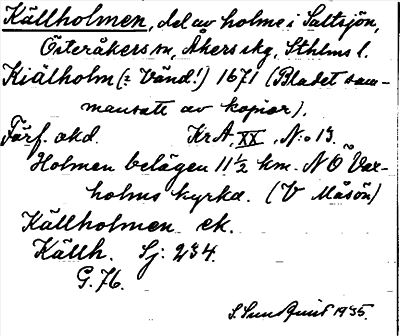 Källholmen, del av holme i Saltsjön,
Österåkers sn, Åkers skg, Sthlms l.
Kiälholm (= Vänd!) 1671 (Bladet sam-
mansatt av kopior).
Förf. okd. KrA, XX, N:o 13.
Holmen belägen 11½ km. NÖ Vax-
holms kyrka. (V Måsön)
Källholmen ek.
Källh. Sj: 234.
G. 76.
S Sundquist 1935.